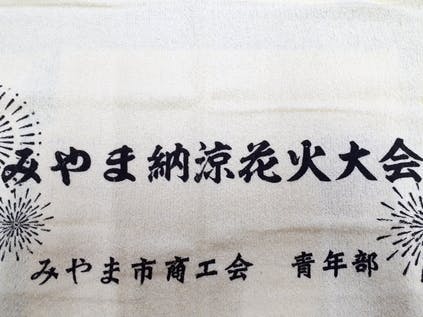 みやま納涼花火大会
みやま市商工会　青年部